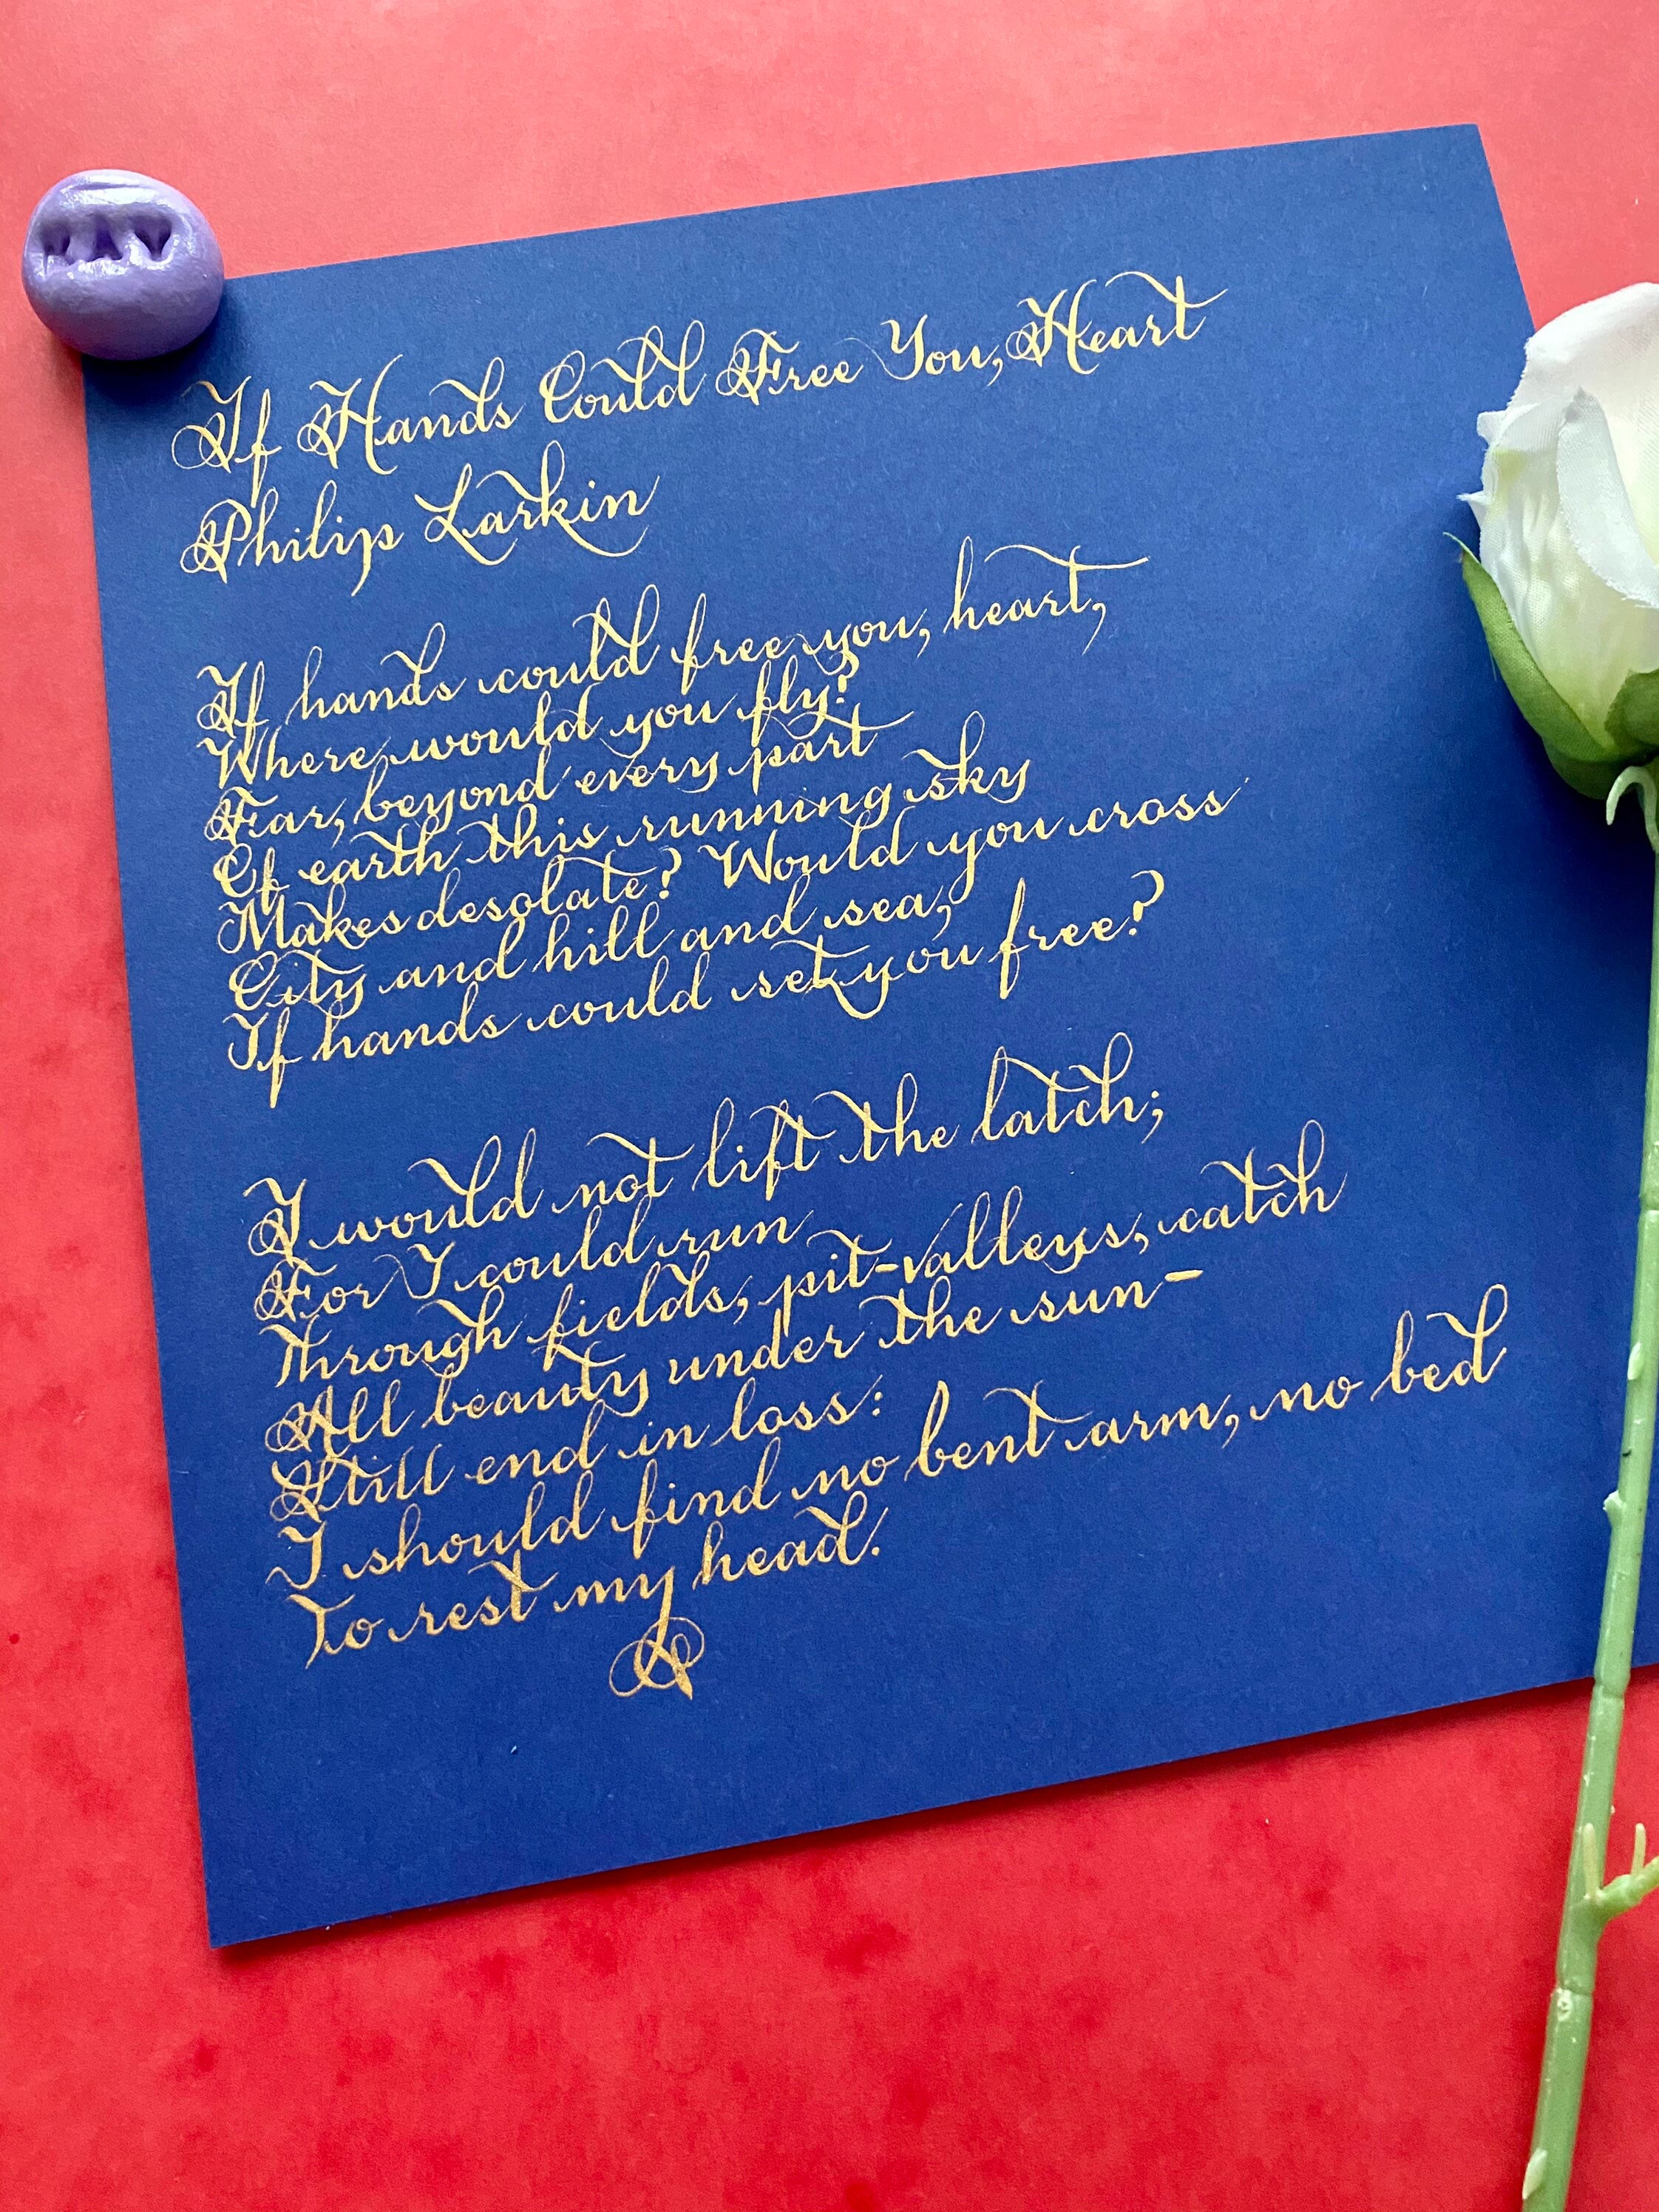 If Hands Could Free You, Heart
Philip Larkin
If hands could free you, heart,
Where would you fly?
Far, beyond every part
Of earth this running sky
Makes desolate? Would you cross
City and hill and sea,
If hands could set you free?
I would not lift the latch;
For I could run
Through fields, pit-valleys, catch
All beauty under the sun-
Still end in loss:
I should find no bent arm, no bed
To rest my head.